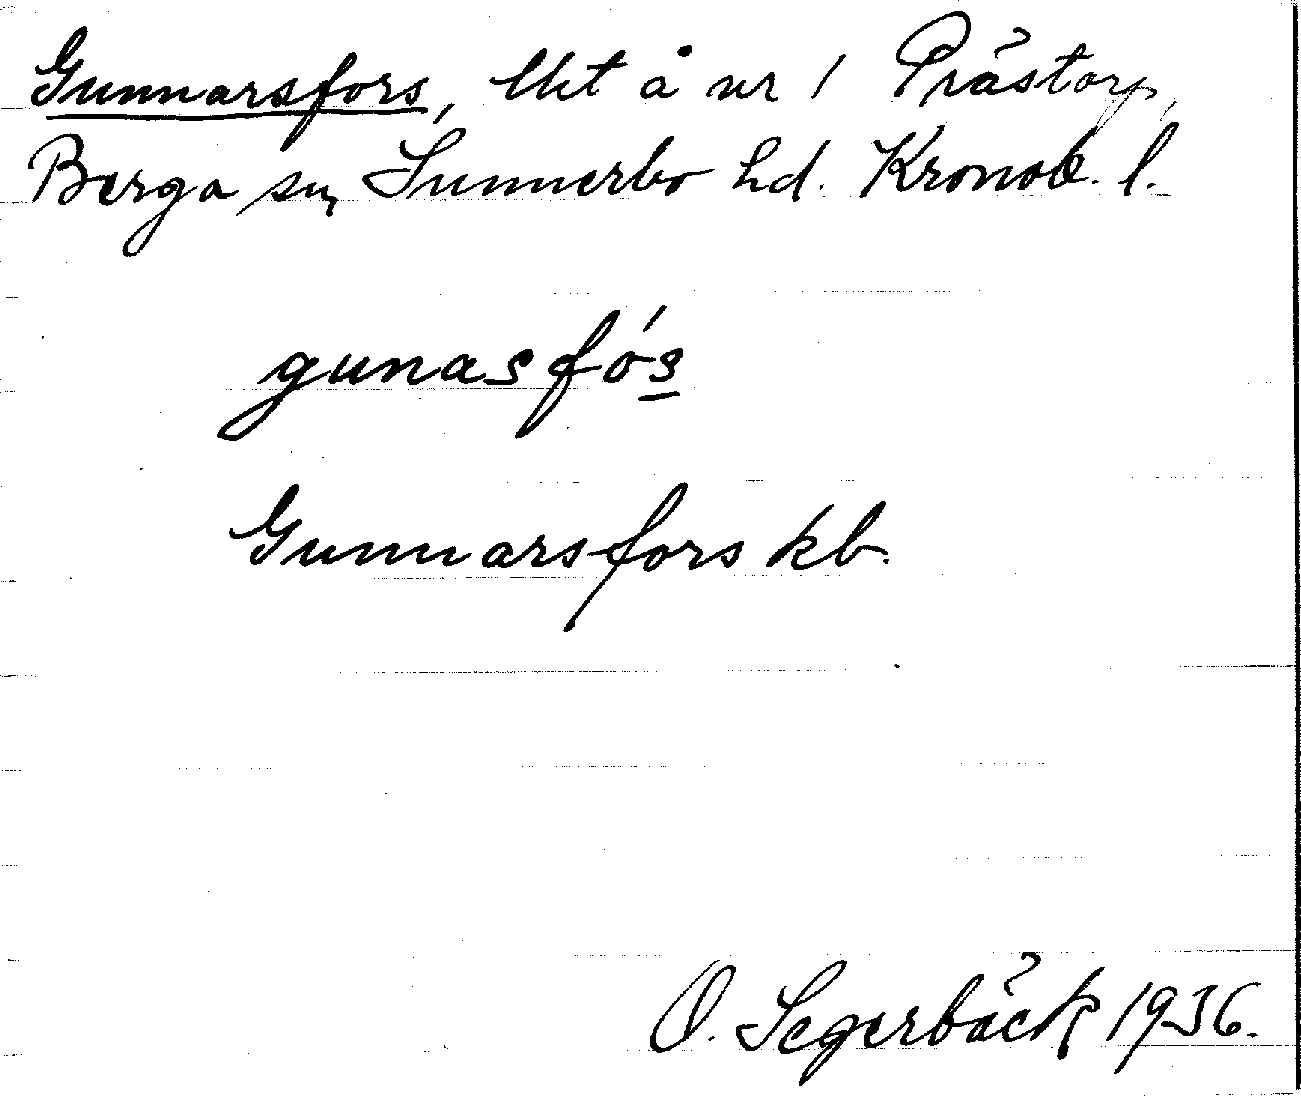 Gunnarsfors, lht å nr 1 Prästorp,
Berga sn, Sunnerbo hd. Kronob. l.
gunasfós
Gunnarsfors kb.
O. Segerbäck 1936.